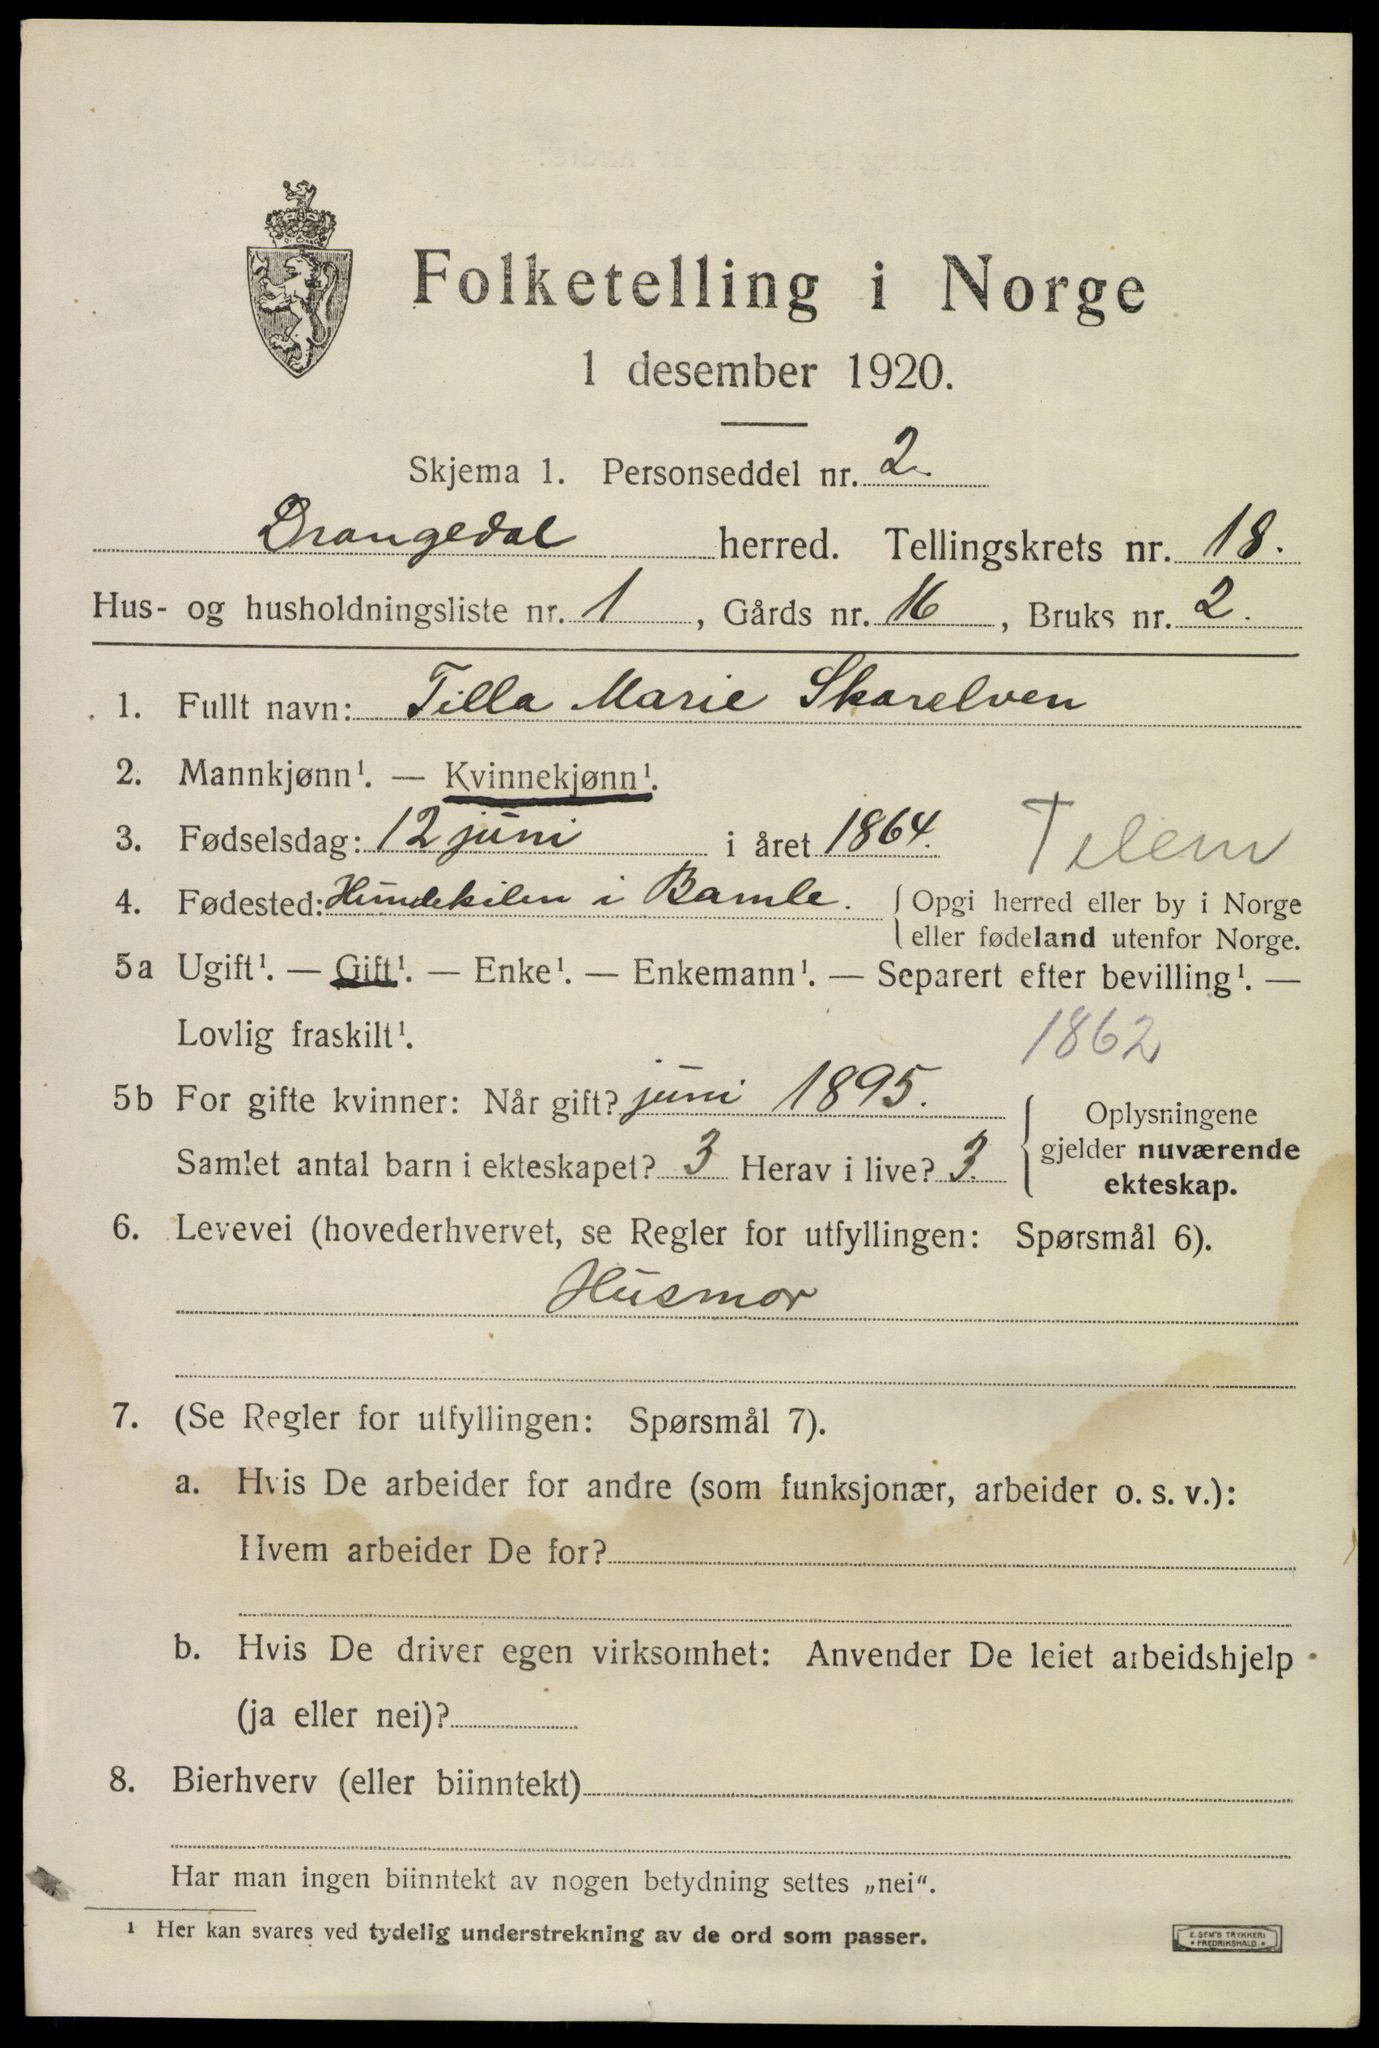 Folketelling i Norge
1 desember 1920.
Skjema 1. Personseddel nr. 2.
Drangedal herred. Tellingskrets nr. 18.
Hus- og husholdningsliste nr. 1, Gårds nr. 16, Bruks nr. 2.
1. Fullt navn: Tilla Marie Skarelven
2. Mannkjønn¹. — Kvinnekjønn¹.
3. Fødselsdag: 12 juni i året 1864.
Telem
4. Fødested: Hundekilen i Bamle. Opgi herred eller by i Norge
eller fødeland utenfor Norge.
5a Ugift¹. — Gift¹. — Enke¹. — Enkemann¹. — Separert efter bevilling¹. —
Lovlig fraskilt¹.
1862
5b For gifte kvinner: Når gift? juni 1895.
Samlet antal barn i ekteskapet? 3 Herav i live? 3.
Oplysningene
gjelder nuværende
ekteskap.
6. Levevei (hovederhvervet, se Regler for utfyllingen: Spørsmål 6).
Husmor
7. (Se Regler for utfyllingen: Spørsmål 7).
a. Hvis De arbeider for andre (som funksjonær, arbeider o. s. v.):
Hvem arbeider De for?
b. Hvis De driver egen virksomhet: Anvender De leiet arbeidshjelp
(ja eller nei)?
8. Bierhverv (eller biinntekt)
Har man ingen biinntekt av nogen betydning settes „nei“.
¹ Her kan svares ved tydelig understrekning av de ord som passer.
E. SEM'S TRYKKERI
• FREDRIKSHALD •